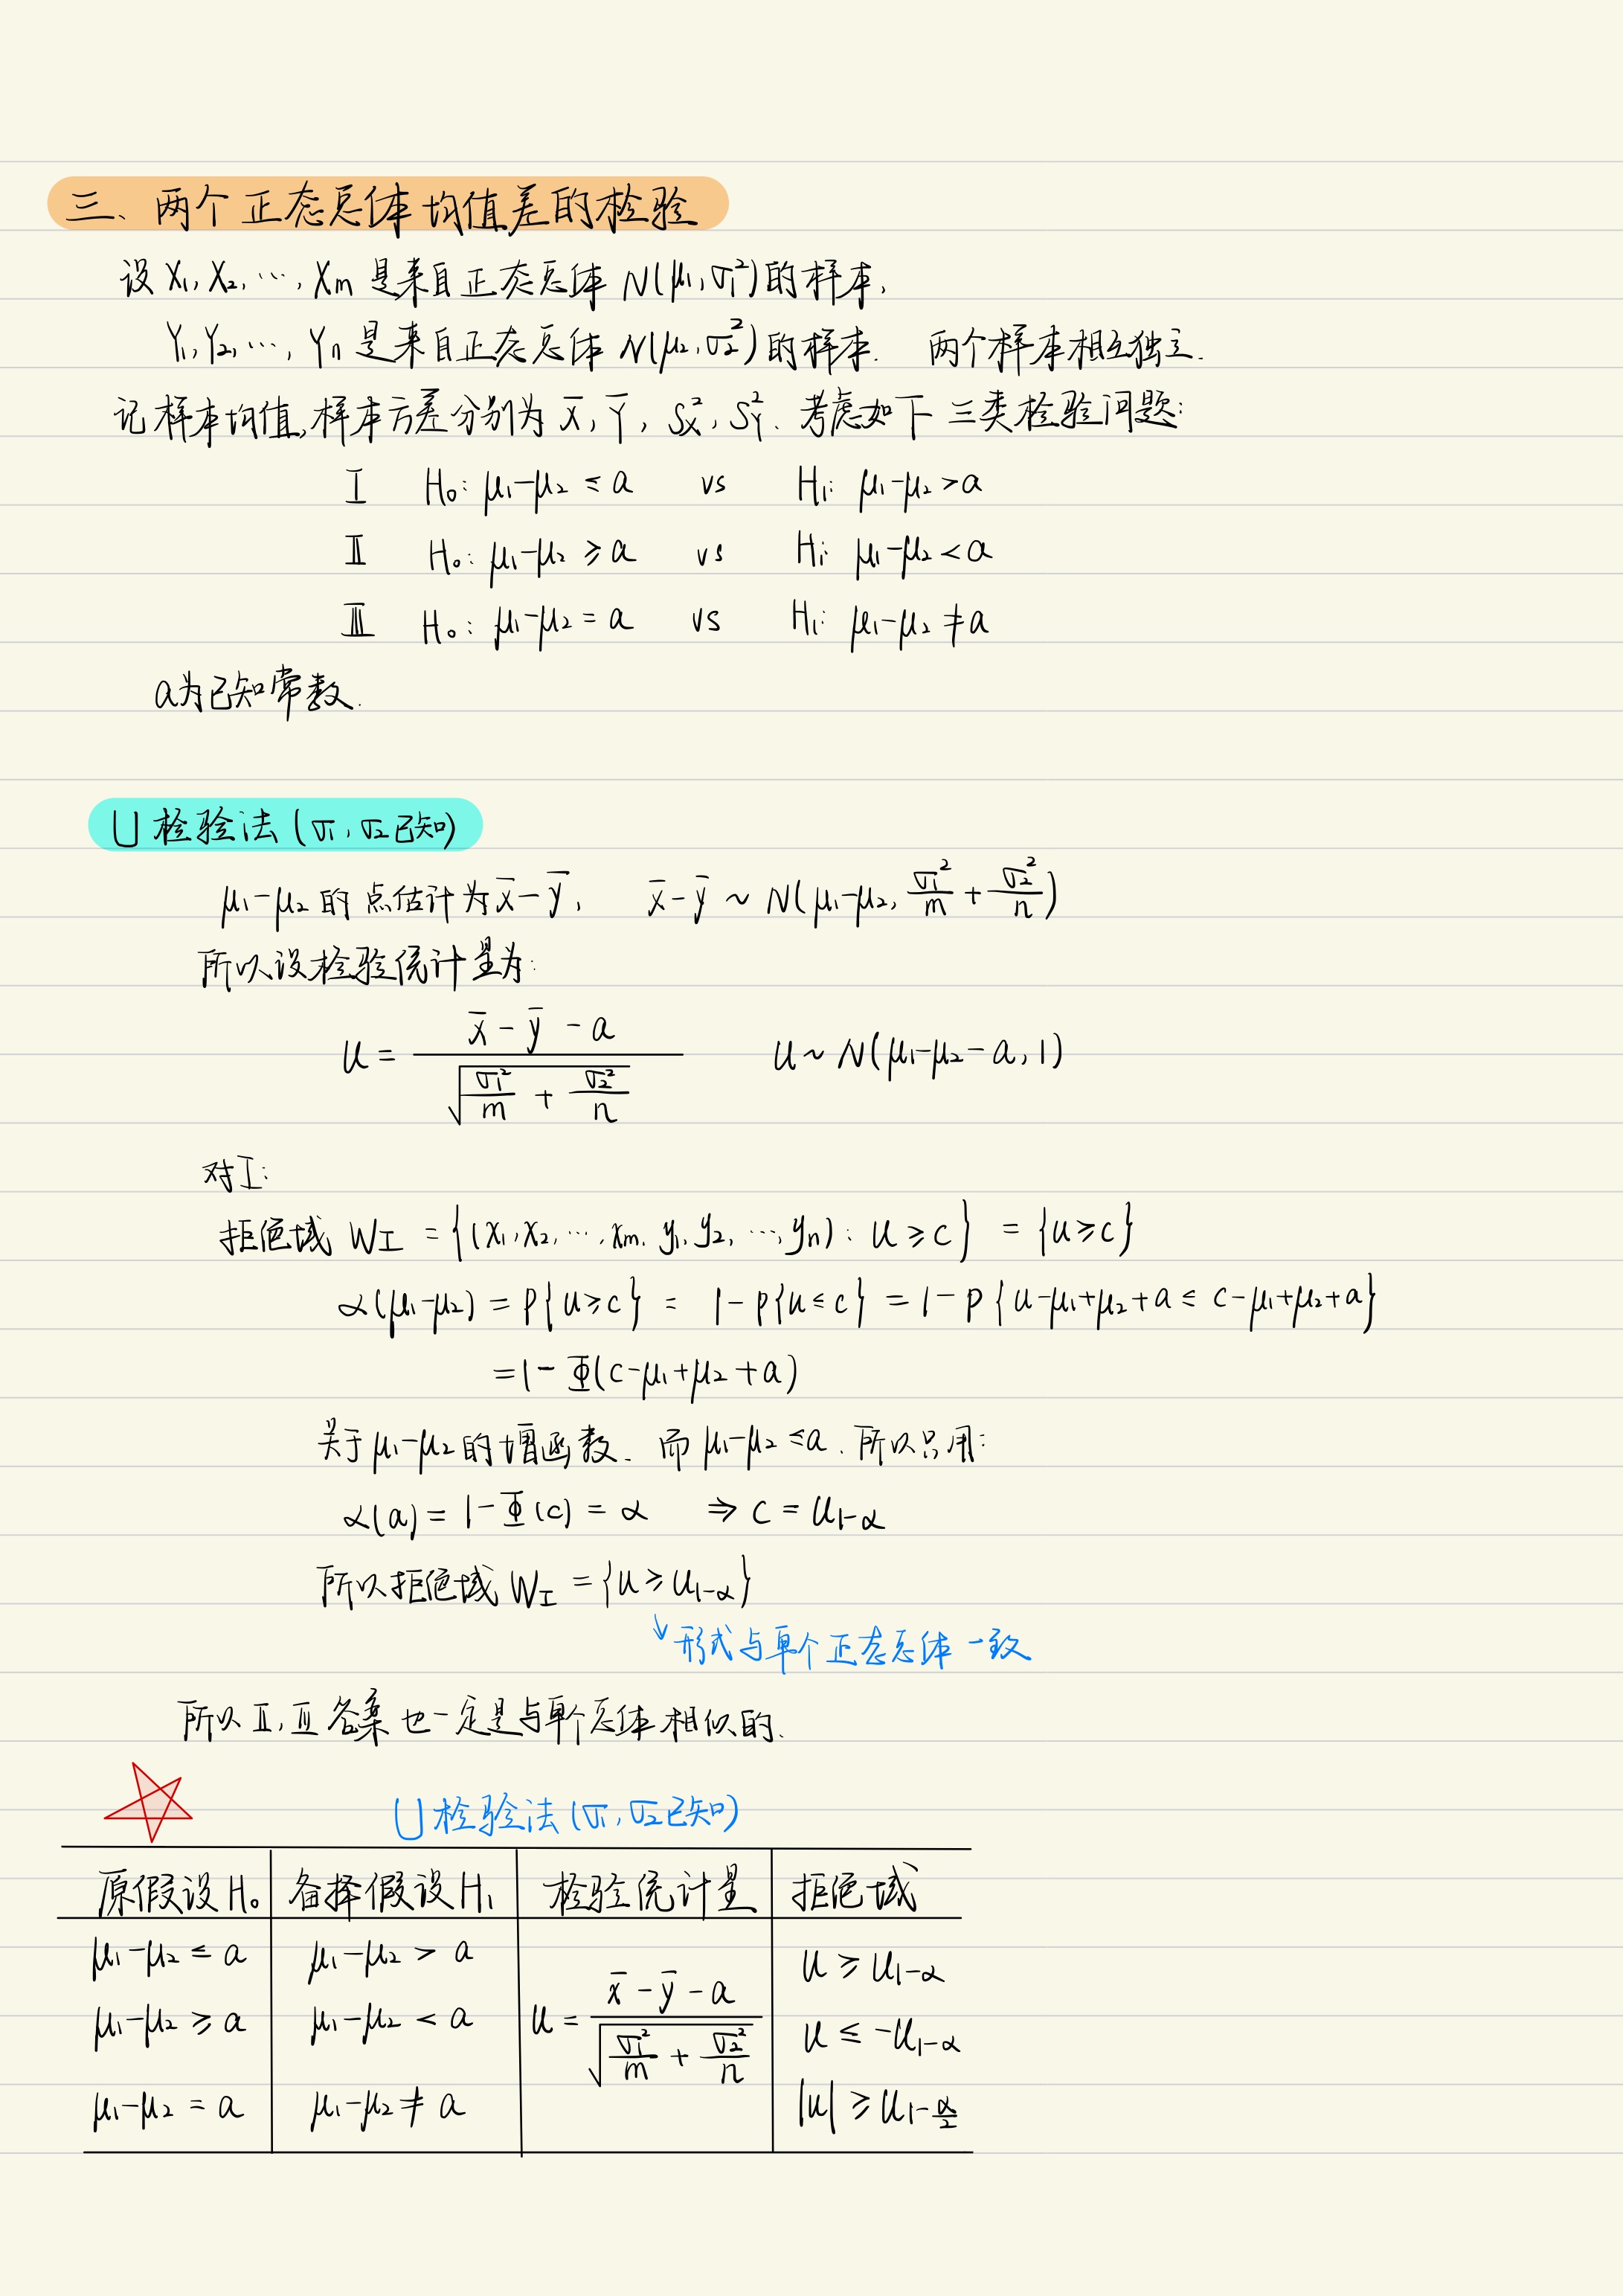 三、两个正态总体均值差的检验
设 X₁, X₂, ⋯, Xm 是来自正态总体 N(μ₁, σ₁²)的样本,
Y₁, Y₂, ⋯, Yn 是来自正态总体 N(μ₂, σ₂²)的样本. 两个样本相互独立.
记样本均值,样本方差分别为 x̄, Ȳ, Sx², SY². 考虑如下三类检验问题:
Ⅰ H₀: μ₁-μ₂ ≤ a vs H₁: μ₁-μ₂ > a
Ⅱ H₀: μ₁-μ₂ ≥ a vs H₁: μ₁-μ₂ < a
Ⅲ H₀: μ₁-μ₂ = a vs H₁: μ₁-μ₂ ≠ a
a为已知常数.
U 检验法 (σ₁, σ₂已知)
μ₁-μ₂ 的点估计为 x̄-ȳ, x̄-ȳ ~ N(μ₁-μ₂, σ₁²/m + σ₂²/n)
所以设检验统计量为:
u = (x̄-ȳ-a)/√(σ₁²/m + σ₂²/n) u ~ N(μ₁-μ₂-a, 1)
对Ⅰ:
拒绝域 W_Ⅰ = {(x₁, x₂, ⋯, xm, y₁, y₂, ⋯, yn): u ≥ c} = {u ≥ c}
α(μ₁-μ₂) = P{u ≥ c} = 1-P{u ≤ c} = 1-P{u-μ₁+μ₂+a ≤ c-μ₁+μ₂+a}
=1-Φ(c-μ₁+μ₂+a)
关于 μ₁-μ₂ 的增函数. 而 μ₁-μ₂ ≤a. 所以只用:
α(a) = 1-Φ(c) = α ⇒ c = u₁₋α
所以拒绝域 W_Ⅰ = {u ≥ u₁₋α}
↘ 形式与单个正态总体一致
所以 Ⅱ, Ⅲ 答案也一定是与单个总体相似的.
U 检验法 (σ₁, σ₂已知)
原假设 H₀ 备择假设 H₁ 检验统计量 拒绝域
μ₁-μ₂ ≤ a μ₁-μ₂ > a u ≥ u₁₋α
μ₁-μ₂ ≥ a μ₁-μ₂ < a u = (x̄-ȳ-a)/√(σ₁²/m + σ₂²/n) u ≤ -u₁₋α
μ₁-μ₂ = a μ₁-μ₂ ≠ a |u| ≥ u_{1-α/2}